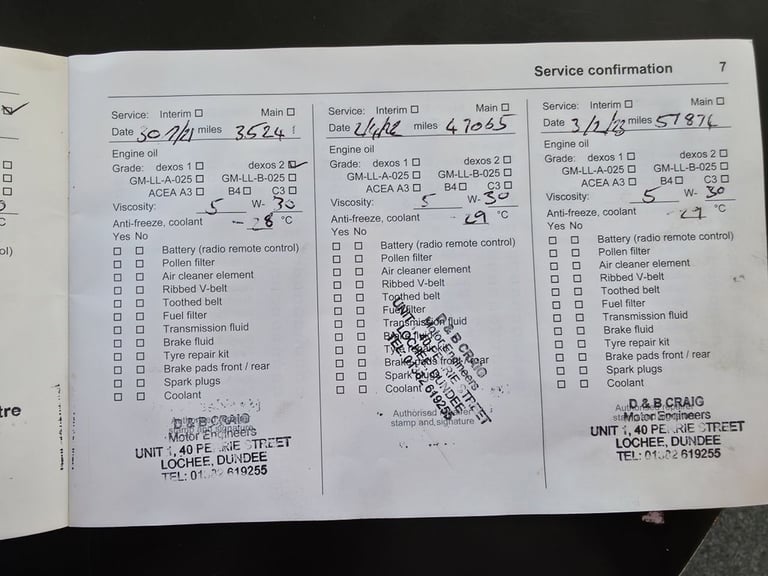 Service confirmation 7
Service: Interim Main
Date 30 7/21 miles 3524
Engine oil
Grade: dexos 1 dexos 2 ✓
GM-LL-A-025 GM-LL-B-025
ACEA A3 B4 C3
Viscosity: 5 W- 30
Anti-freeze, coolant - 28 °C
Yes No
Battery (radio remote control)
Pollen filter
Air cleaner element
Ribbed V-belt
Toothed belt
Fuel filter
Transmission fluid
Brake fluid
Tyre repair kit
Brake pads front / rear
Spark plugs
Coolant
stamp and signature
D & B CRAIG
Motor Engineers
UNIT 1, 40 STREET
LOCHEE, DUNDEE
TEL: 619255
Service: Interim Main
Date miles 47065
Engine oil
Grade: dexos 1 dexos 2
GM-LL-A-025 GM-LL-B-025
ACEA A3 B4 C3
Viscosity: 5 W- 30
Anti-freeze, coolant -29 °C
Yes No
Battery (radio remote control)
Pollen filter
Air cleaner element
Ribbed V-belt
Toothed belt
Fuel filter
Transmission fluid
Brake fluid
Tyre repair kit
Brake pads front / rear
Spark plugs
Coolant
Authorised
stamp and signature
D & B CRAIG
Motor Engineers
UNIT 1, 40 STREET
LOCHEE, DUNDEE
TEL: 619255
Service: Interim Main
Date 3/2/23 miles 51876
Engine oil
Grade: dexos 1 dexos 2
GM-LL-A-025 GM-LL-B-025
ACEA A3 B4 C3
Viscosity: 5 W- 30
Anti-freeze, coolant °C
Yes No
Battery (radio remote control)
Pollen filter
Air cleaner element
Ribbed V-belt
Toothed belt
Fuel filter
Transmission fluid
Brake fluid
Tyre repair kit
Brake pads front / rear
Spark plugs
Coolant
D & B CRAIG
Motor Engineers
UNIT 1, 40 STREET
LOCHEE, DUNDEE
TEL: 619255